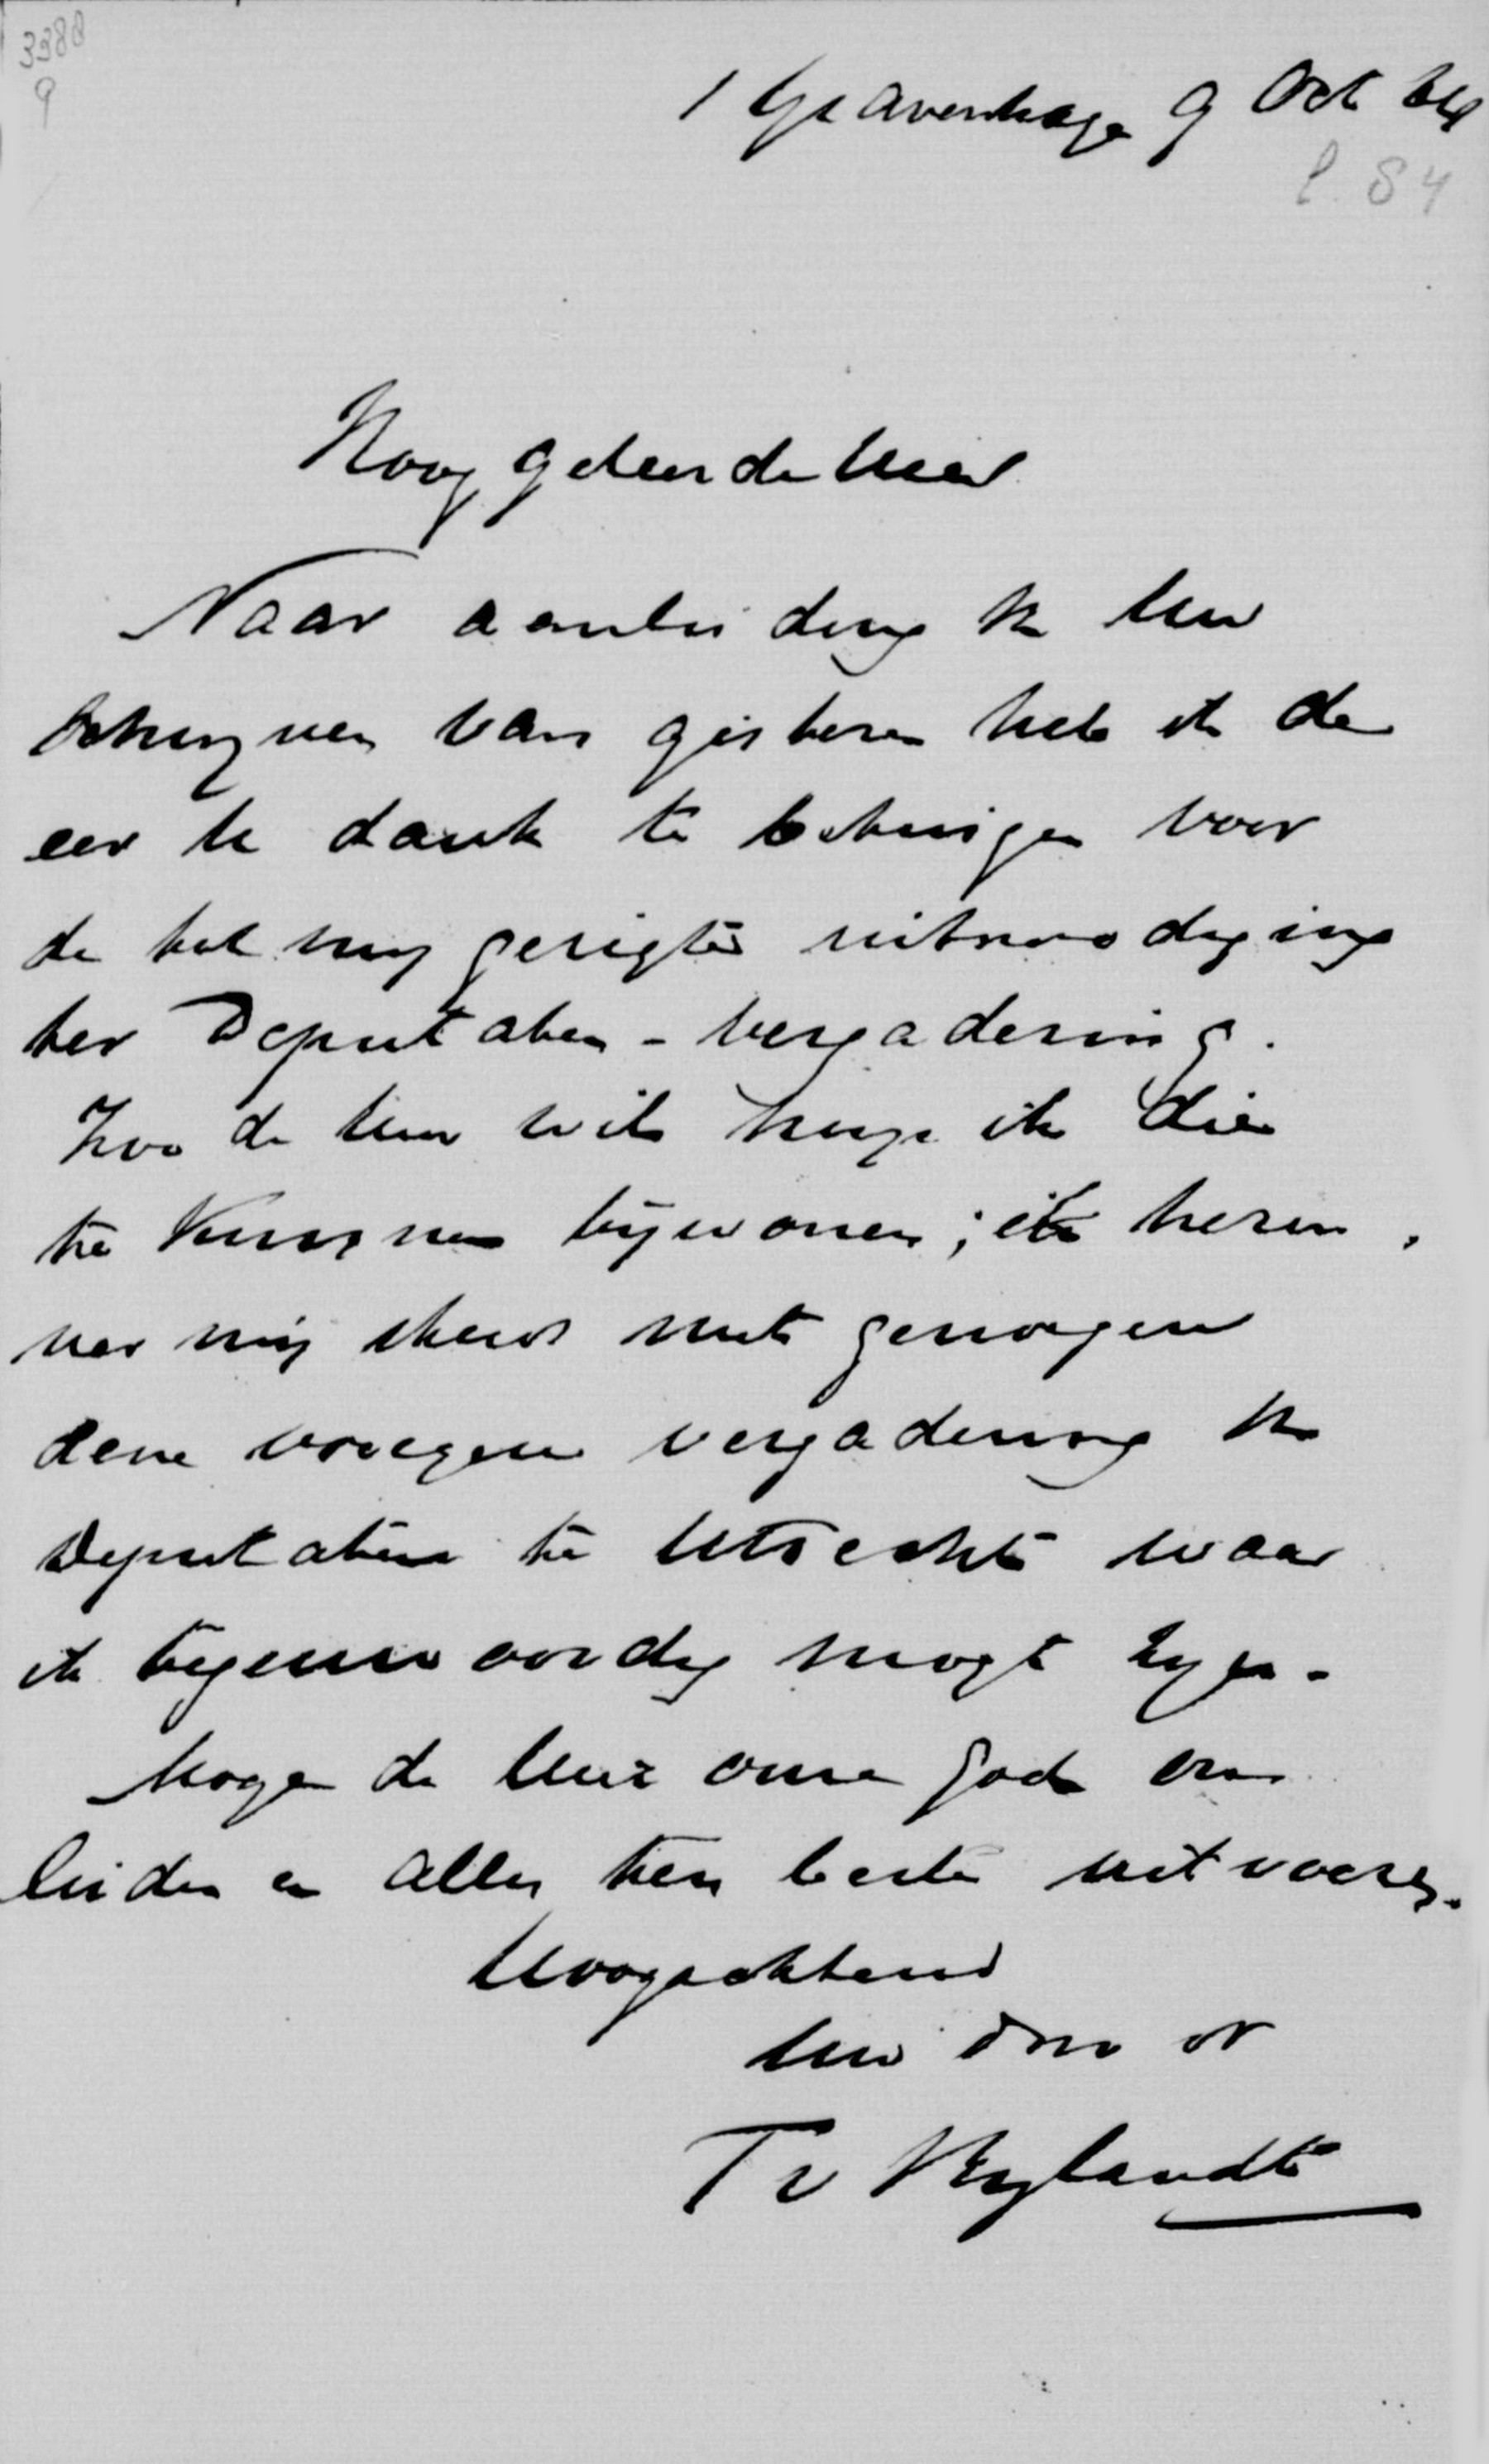 3380
9
's Gravenhage 9 Oct 84
P. 84
Hooggeleerde Heer
Naar aanleiding v. Uw
schrijven van gisteren heb ik de
eer U dank te betuigen voor
de tot mij gerigte uitnoodiging
ter Deputaten-vergadering.
Zoo de Heer wil hoop ik die
te kunnen bijwonen; ik herin,
ner mij steeds met genoegen
dene vroegere vergadering v.
Deputaten te Utrecht waar
ik tegenwoordig mogt zyn.
Moge de Heer onze God ons
leiden en alles ten beste uitvoeren.
Hoogachtend
Uw
T v Bylandt